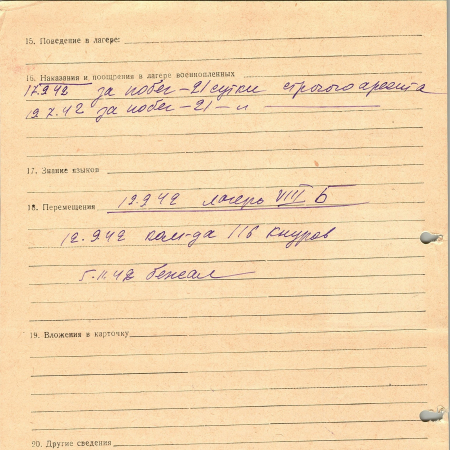 15. Поведение в лагере:
16. Наказания и поощрения в лагере военнопленных
17.9.42 за побег – 21 сутки строгого ареста
19.7.42 за побег – 21 – "
17. Знание языков
18. Перемещения 12.9.42 лагерь VIII Б
12.9.42 ком-да 116 Кнуров
5.11.42 бежал
19. Вложения в карточку
20. Другие сведения